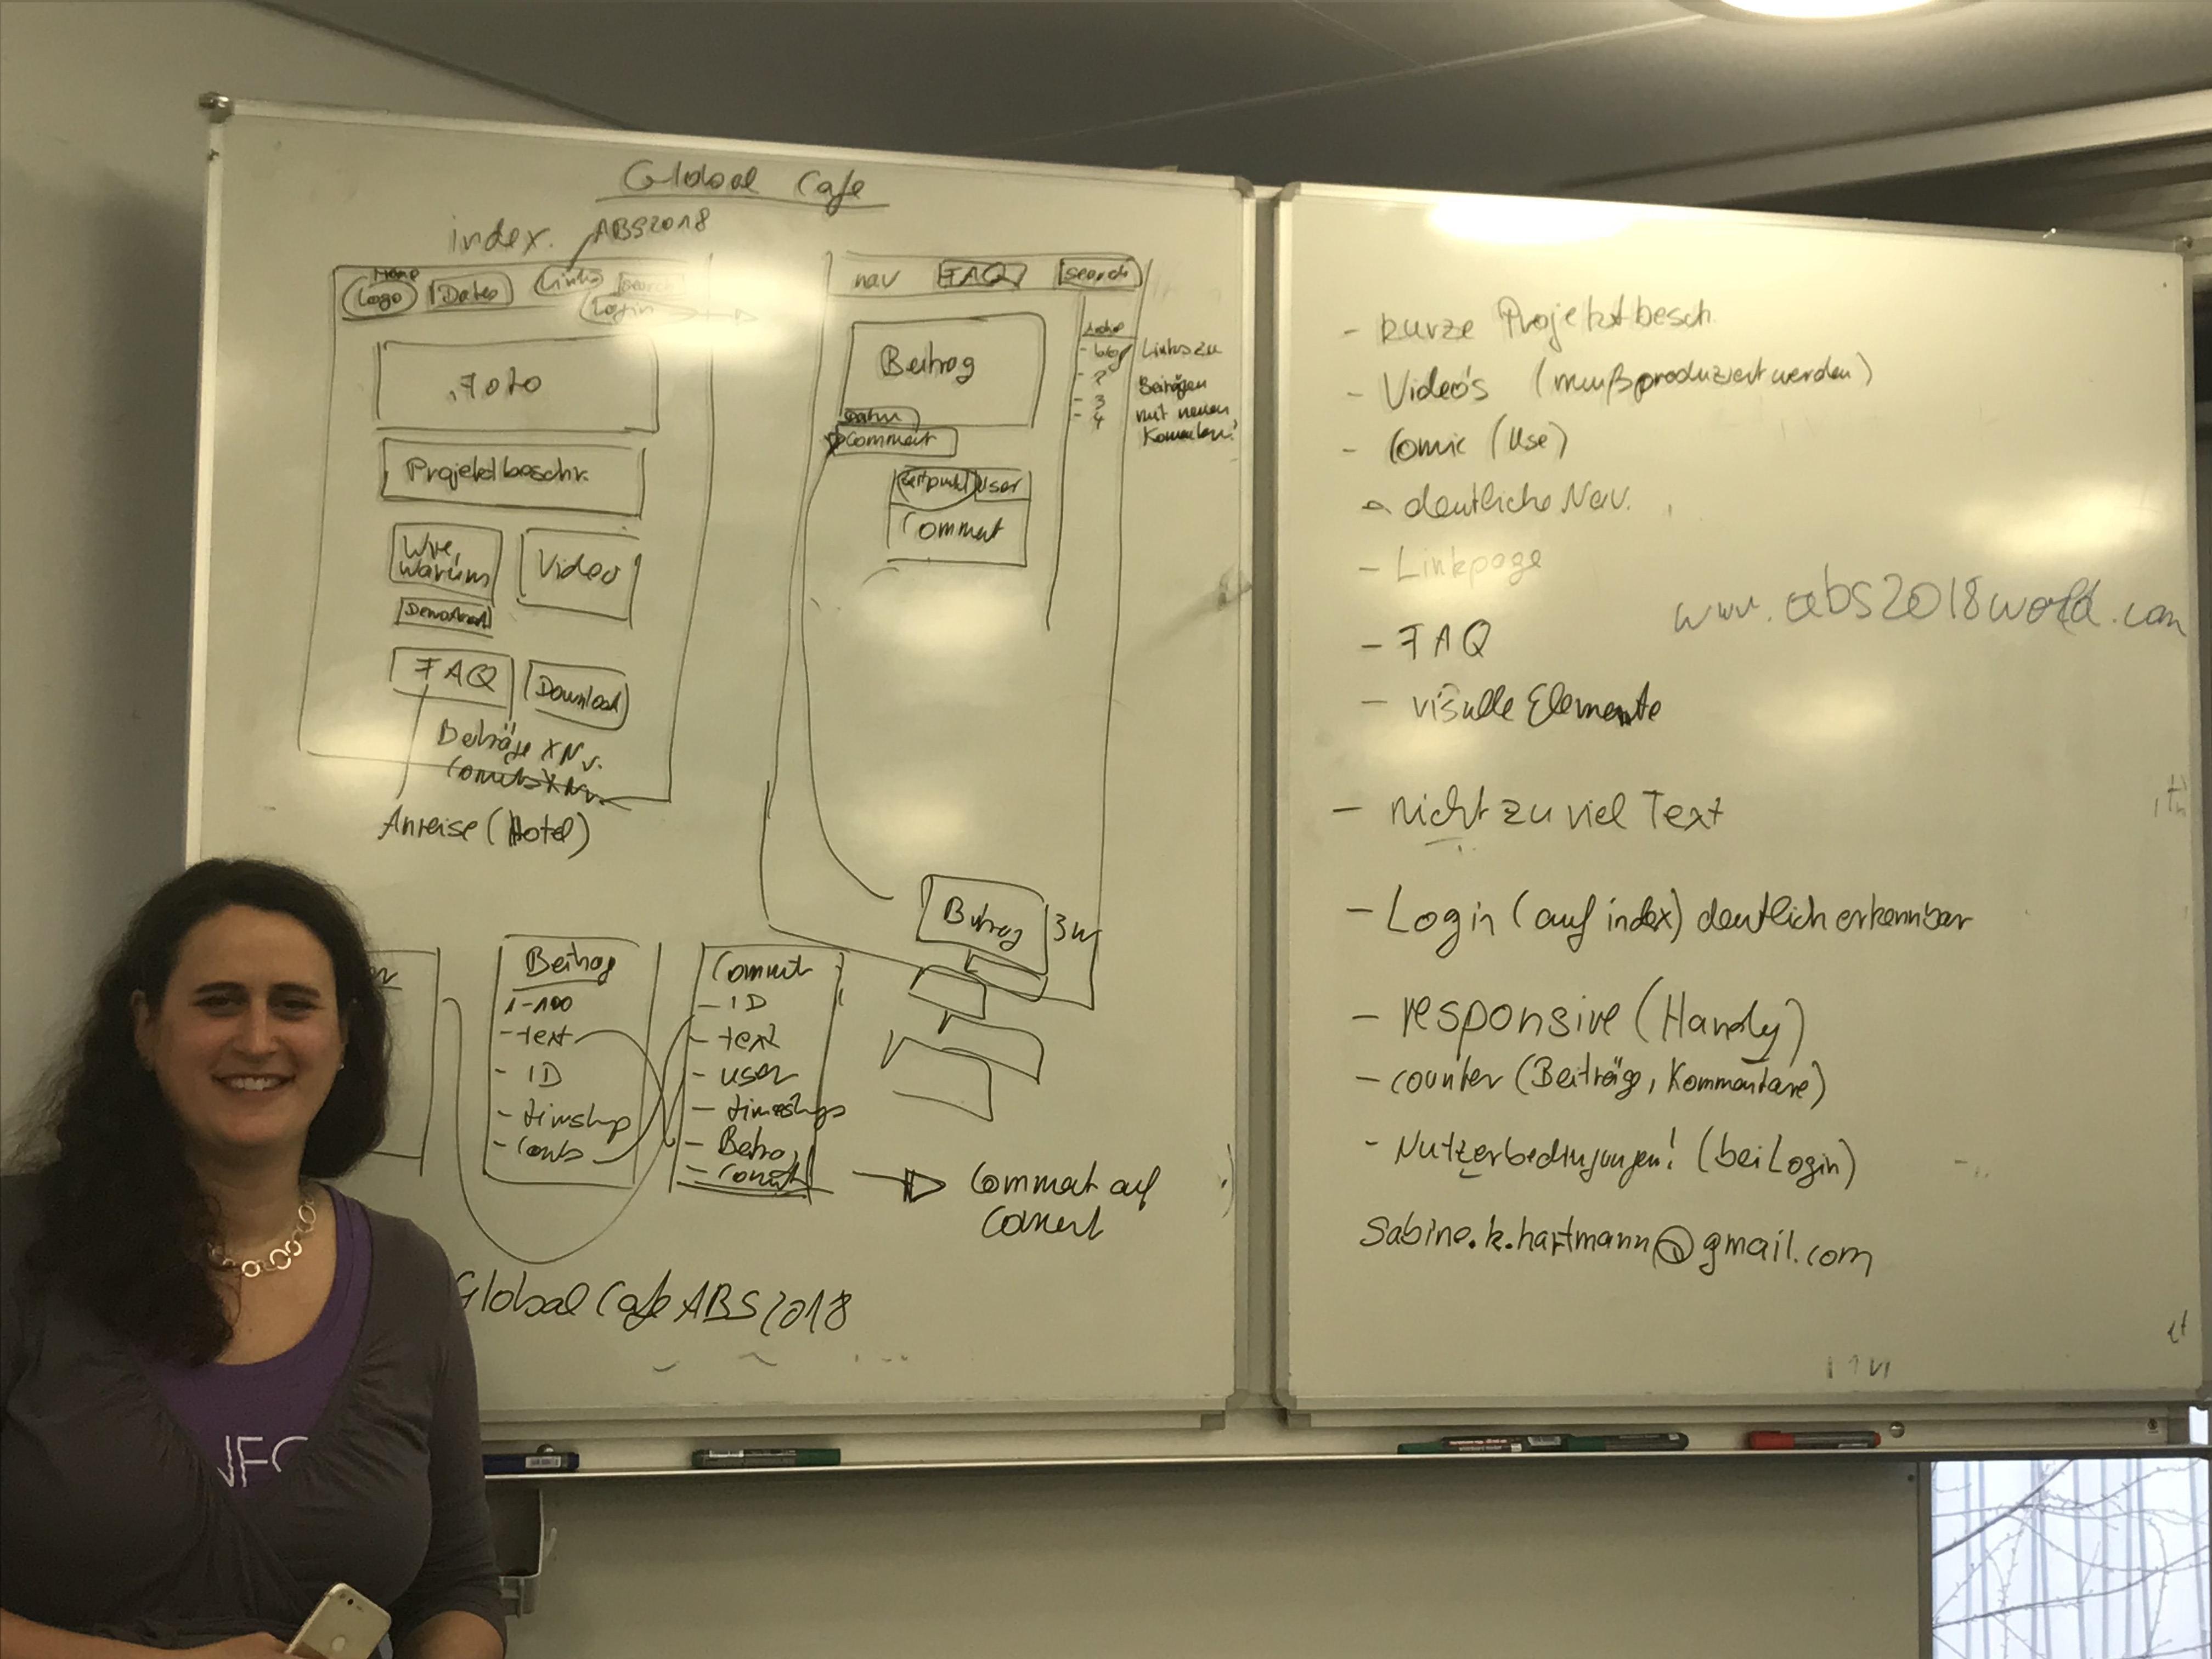 Global Cafe
index.
ABS2018
Home
Logo
Dates
Links
search
Login
Foto
Projektbeschr.
Wie, warum
Video
FAQ
Download
Beiträge x Nr.
Anreise (Hotel)
nav
FAQ
search
Beitrag
Datum
Comment
Zeitpunkt
User
Comment
- 2
- 3
- 4
Links zu
Beiträgen
mit neuen
Beitrag
Beitrag
1-100
- text
- ID
Comment
- ID
- text
- user
Comment auf
Comment
Global Cafe ABS2018
- kurze Projektbesch.
- Video's (muß produziert werden)
- Comic (Use)
- deutliche Nav.
- Linkpage
- FAQ
- visuelle Elemente
- nicht zu viel Text
- Login (auf index) deutlich erkennbar
- responsive (Handy)
- counter (Beiträge, Kommentare)
- Nutzerbedingungen! (bei Login)
sabine.k.hartmann@gmail.com
www.abs2018world.com